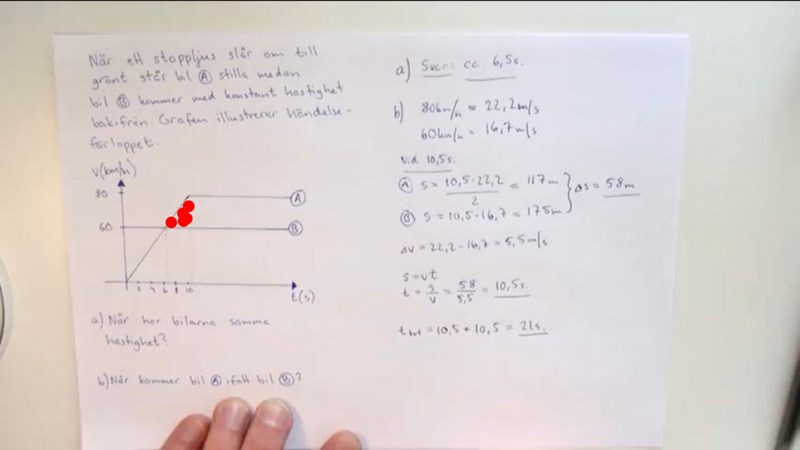 När ett stoppljus slår om till
grönt står bil A stilla medan
bil B kommer med konstant hastighet
bakifrån. Grafen illustrerar händelse-
förloppet.
v(km/h)
80
A
60
B
2 4 6 8 10
t(s)
a) När har bilarna samma
hastighet?
b) När kommer bil A ifatt bil B?
a) Svar: ca. 6,5s.
b) 80km/h = 22,2m/s
60km/h = 16,7m/s
Vid 10,5s:
A s = 10,5·22,2/2 = 117m
Δs = 58m
B s = 10,5·16,7 = 175m
Δv = 22,2-16,7 = 5,5m/s
s=vt
t = s/v = 58/5,5 = 10,5s.
t tot = 10,5 + 10,5 = 21s.